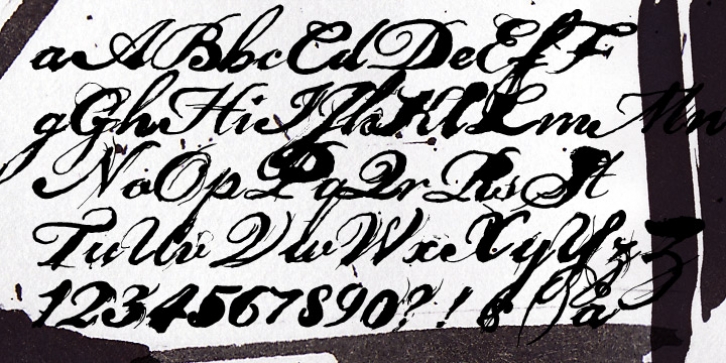 aABbcCdDeEfF
gGhHiIJkKlLmMn
NoOpPqQrRsSt
TuUvVwWxXyYzZ
1234567890?! & () å